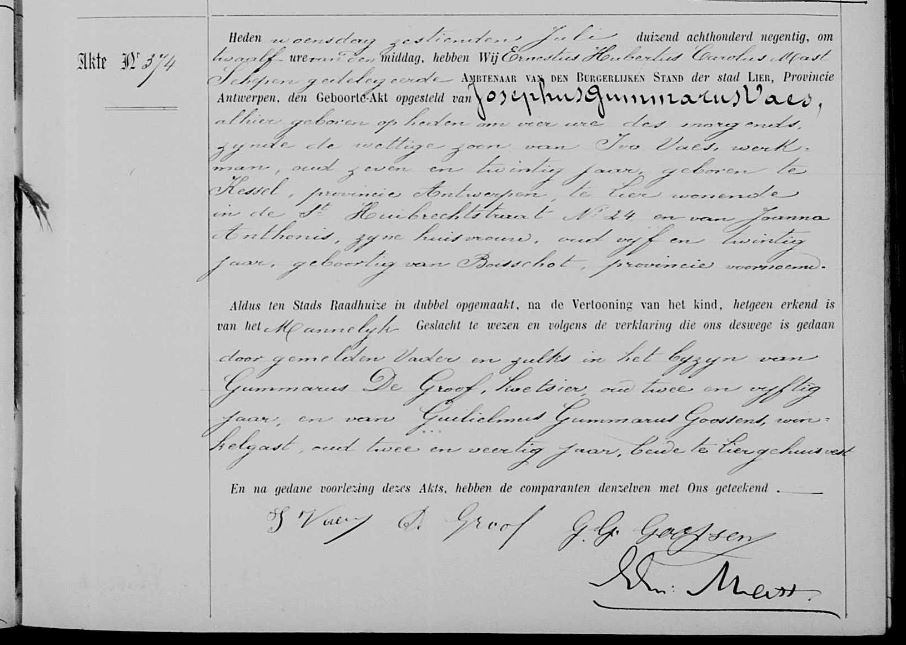 Akte Nº 374
Heden woensdag zestienden Juli duizend achthonderd negentig, om
twaalf ure van den middag, hebben Wij Ernestus Hubertus Carolus Mast
Schepen gedelegeerde AMBTENAAR VAN DEN BURGERLIJKEN STAND der stad LIER, Provincie
Antwerpen, den Geboorte-Akt opgesteld van Josephus Gummarus Vaes,
alhier geboren op heden om vier ure des morgends,
zynde de wettige zoon van Ivo Vaes, werk-
man, oud zeven en twintig jaar, geboren te
Kessel, provincie Antwerpen, te Lier wonende
in de St Huibrechtstraat No 24 en van Joanna
Anthonis, zyne huisvrouw, oud vyf en twintig
jaar, geboortig van Boisschot, provincie voornoemd.
Aldus ten Stads Raadhuize in dubbel opgemaakt, na de Vertooning van het kind, hetgeen erkend is
van het Mannelyk Geslacht te wezen en volgens de verklaring die ons deswege is gedaan
door gemelden Vader en zulks in het byzyn van
Gummarus De Groof, koetsier, oud twee en vyftig
jaar, en van Guilielmus Gummarus Goossens, win-
kelgast, oud twee en veertig jaar, beide te Lier gehuisvest
En na gedane voorlezing dezes Akts, hebben de comparanten denzelven met Ons geteekend.
Vaes Groof G. G. Goossens
Mast